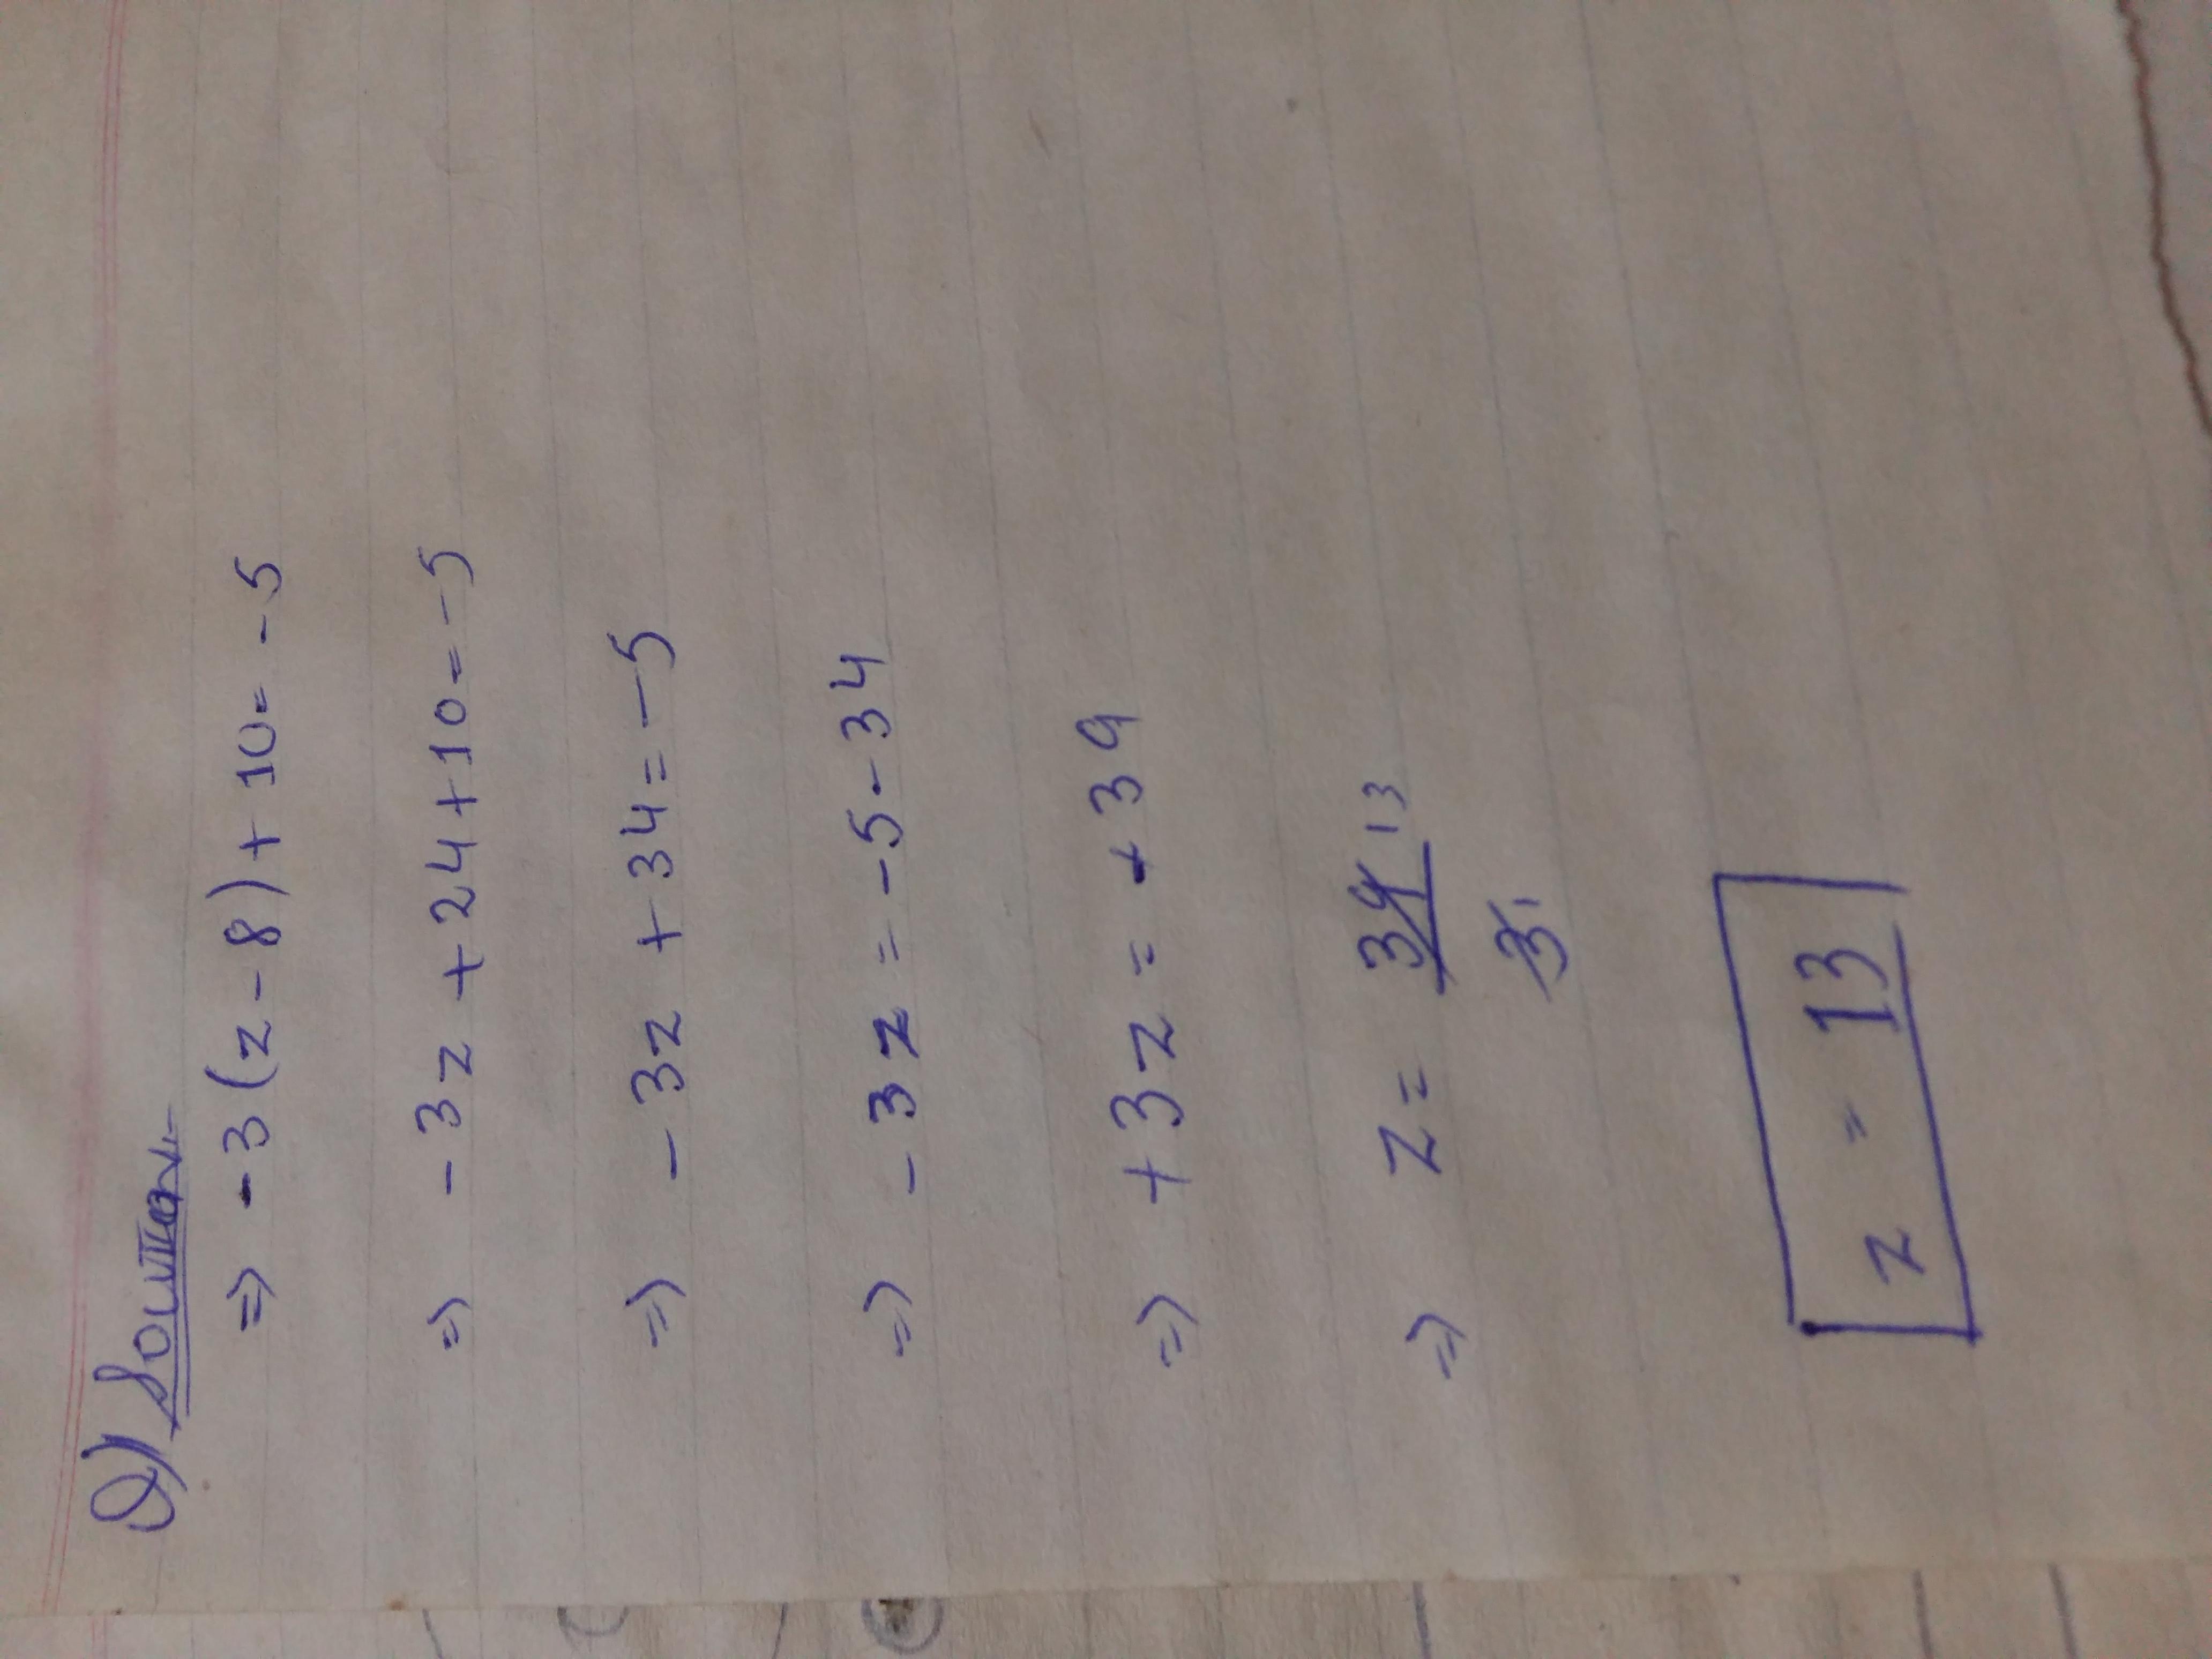 Q) Solution:-
=> -3(z-8)+10=-5
=> -3z+24+10=-5
=> -3z+34=-5
=> -3z=-5-34
=> +3z=+39
=> z= 39 13
3 1
z = 13